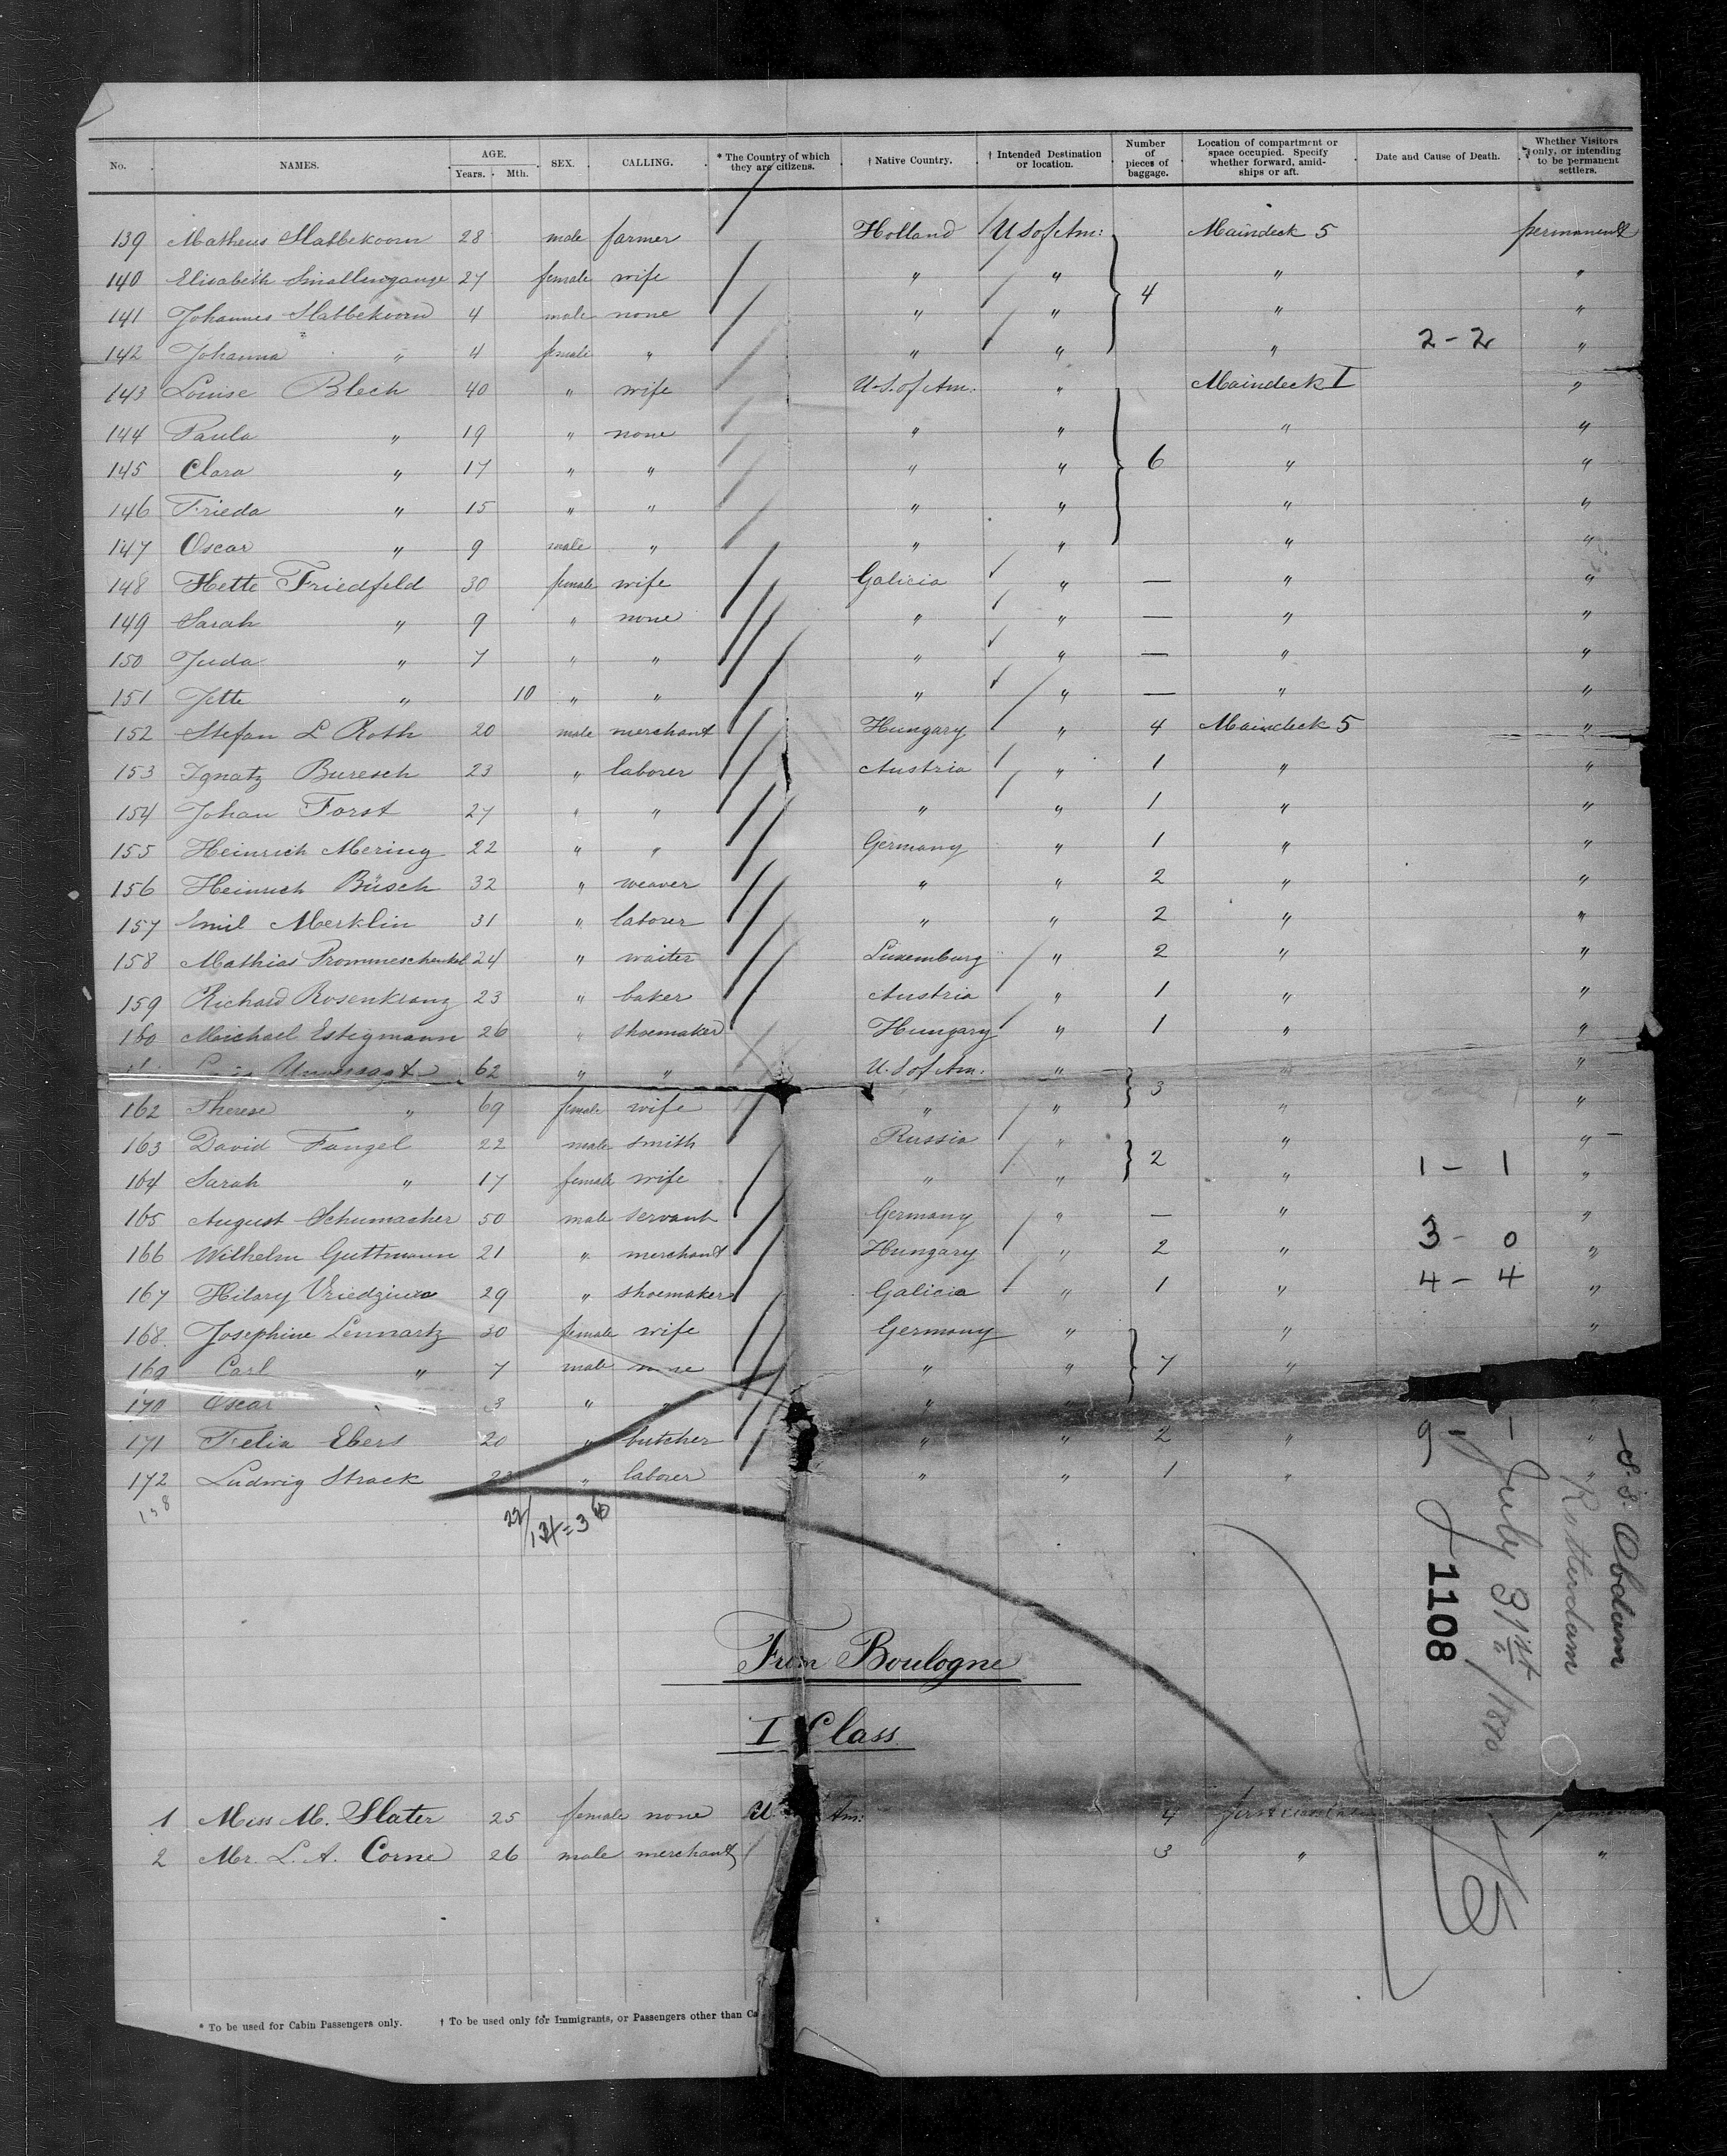 No. NAMES. AGE. Years. Mth. SEX. CALLING. * The Country of which they are citizens. † Native Country. † Intended Destination or location. Number of pieces of baggage. Location of compartment or space occupied. Specify whether forward, amidships or aft. Date and Cause of Death. Whether Visitors only, or intending to be permanent settlers.
139 Matheus Slabbekoorn 28 male farmer Holland U S of Am: Maindeck 5 permanent
140 Elisabeth Smallengange 27 female wife " " 4 " "
141 Johannes Slabbekoorn 4 male none " " " "
142 Johanna " 4 female " " " " 2-2 "
143 Louise Blech 40 " wife U.S. of Am. " Maindeck I "
144 Paula " 19 " none " " " "
145 Clara " 17 " " " " 6 " "
146 Frieda " 15 " " " " " "
147 Oscar " 9 male " " " " "
148 Hette Friedfeld 30 female wife Galicia " — " "
149 Sarah " 9 " none " " — " "
150 Juda " 7 " " " " — " "
151 Jette " 10 " " " " — " "
152 Stefan L Roth 20 male merchant Hungary " 4 Maindeck 5 "
153 Ignatz Buresch 23 " laborer Austria " 1 " "
154 Johan Forst 27 " " " " 1 " "
155 Heinrich Mering 22 " " Germany " 1 " "
156 Heinrich Büsch 32 " weaver " " 2 " "
157 Emil Merklin 31 " laborer " " 2 " "
158 Mathias Prommeschenkel 24 " waiter Luxemburg " 2 " "
159 Richard Rosenkranz 23 " baker Austria " 1 " "
160 Michael Estegmann 26 " shoemaker Hungary " 1 " "
62 " " U.S of Am. " 3 " "
162 Therese " 69 female wife " " " "
163 David Fangel 22 male smith Russia " 2 " "
164 Sarah " 17 female wife " " " 1-1 "
165 August Schumacher 50 male servant Germany " — " "
166 Wilhelm Guttmann 21 " merchant Hungary " 2 " 3-0 "
167 Hilary 29 " shoemaker Galicia " 1 " 4-4 "
168 Josephine Lennartz 30 female wife Germany " " "
169 Carl " 7 male none " " 7 "
170 Oscar " 3 " " "
171 Felix Ebers 20 " butcher " " 2 " "
172 Ludwig Strack " laborer " " 1 " "
From Boulogne
I Class
1 Miss M. Slater 25 female none U Am: 4 first class permanent
2 Mr. L. A. Corne 26 male merchant 3 " "
S.S. Obdam
Rotterdam
July 31st/1890
1108
* To be used for Cabin Passengers only. † To be used only for Immigrants, or Passengers other than Ca